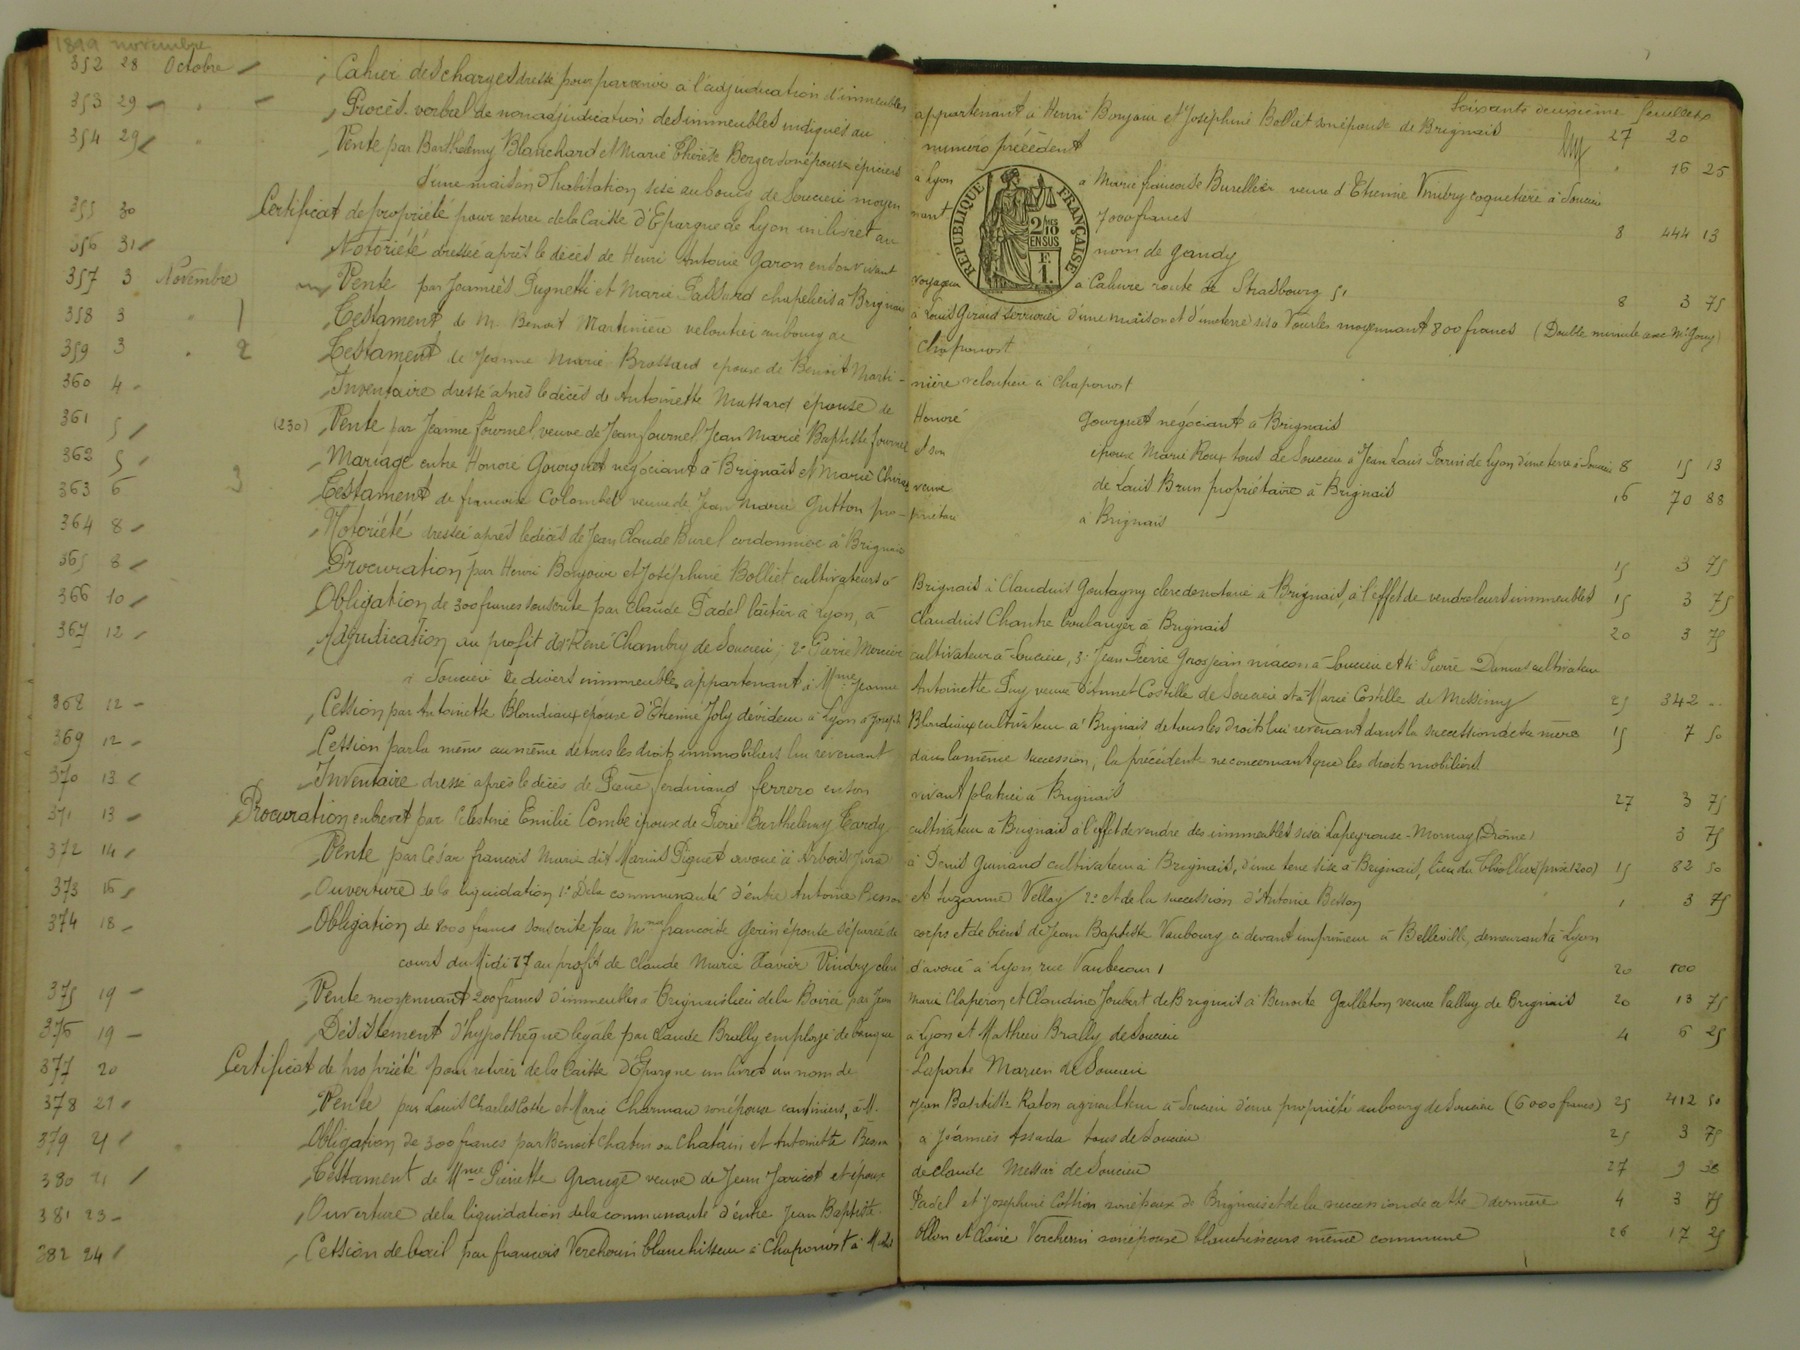 1899 novembre
Soixante deuxième feuillet
352 28 Octobre Cahier des charges dressé pour parvenir à l'adjudication d'immeubles appartenant à Henri Bonjour et Joséphine Bolliet son épouse de Brignais 27 20
353 29 " Procès verbal de non adjudication des immeubles indiqués au numéro précédent " 16 25
354 29 " Vente par Barthélemy Blanchard et Marie Thérèse Berger son épouse épiciers à Lyon à Marie françoise Burellier veuve d'Etienne coquetière à Soucieu
d'une maison d'habitation sise au bourg de Soucieu moyennant 7000 francs 8 444 13
355 30 Certificat de propriété pour retirer de la Caisse d'Epargne de Lyon un livret au nom de Gandy
REPUBLIQUE FRANÇAISE
2/10 EN SUS
1 F.
356 31 Notoriété dressée après le décès de Henri Antoine Garon en son vivant voyageur à Caluire route de Strasbourg 51 8 3 75
357 3 Novembre Vente par Joannès Pugnetti et Marie Passard chapeliers à Brignais à Louis Girard serrurier d'une maison et d'une terre sis à Vourles moyennant 800 francs (Double minute avec Me Gouy)
358 3 " 1 Testament de M. Benoit Martinière veloutier au bourg de Chaponost
359 3 " 2 Testament de Jeanne Marie Brossard épouse de Benoit Martinière veloutier à Chaponost
360 4 Inventaire dressé après le décès de Antoinette Massard épouse de Honoré Gourguet négociant à Brignais
361 5 (230) Vente par Jeanne fournel, veuve de Jean fournel, Jean Marie Baptiste fournel et son épouse Marie Roux tous de Soucieu à Jean Louis de Lyon d'une terre à Soucieu 8 15 13
362 5 Mariage entre Honoré Gourguet négociant à Brignais et Marie veuve de Louis Brun propriétaire à Brignais 16 70 88
363 6 3 Testament de françoise Colombet veuve de Jean Marie Gutton propriétaire à Brignais
364 8 Notoriété dressée après le décès de Jean Claude Burel cordonnier à Brignais 15 3 75
365 8 Procuration par Henri Bonjour et Joséphine Bolliet cultivateurs à Brignais à Claudius Goutagny clerc de notaire à Brignais, à l'effet de vendre leurs immeubles 15 3 75
366 10 Obligation de 300 francs souscrite par Claude Fadel laitier à Lyon, à Claudius Chantre boulanger à Brignais 20 3 75
367 12 Adjudication au profit de 1° René Chambry de Soucieu, 2° Pierre Mercier cultivateur à Soucieu, 3° Jean Pierre Grosjean maçon à Soucieu et 4° Pierre Dumas cultivateur
à Soucieu de divers immeubles appartenant à Mme Jeanne Antoinette Puy veuve d'Annet Costille de Soucieu et à Marie Costille de Messimy 25 342 "
368 12 Cession par Antoinette Blondiaux épouse d'Etienne Joly dévideur à Lyon à Joseph Blondiaux cultivateur à Brignais de tous les droits lui revenant dans la succession de sa mère 15 7 50
369 12 Cession par la même au même de tous les droits immobiliers lui revenant dans la même succession, la précédente ne concernant que les droits mobiliers
370 13 Inventaire dressé après le décès de Pierre ferdinand ferrero en son vivant platrier à Brignais 27 3 75
371 13 Procuration en brevet par Célestine Emilie Combe épouse de Pierre Barthélemy Tardy cultivateur à Brignais à l'effet de vendre des immeubles sis à Lapeyrouse-Mornay (Drôme) 3 75
372 14 Vente par César françois Marie dit Marius Piquet avoué à Arbois (Jura) à Denis Guinand cultivateur à Brignais, d'une terre sise à Brignais, lieu du (prix 1200) 15 82 50
373 16 Ouverture de la liquidation 1° De la communauté d'entre Antoine Besson et Suzanne Vellay 2° et de la succession d'Antoine Besson 1 3 75
374 18 Obligation de 8000 francs souscrite par Mme françoise Gerin épouse séparée de corps et de biens de Jean Baptiste Vaubourg ci devant imprimeur à Belleville, demeurant à Lyon
cours du Midi 17 au profit de Claude Marie Xavier Vindry clerc d'avoué à Lyon rue Vaubecour 1 20 100
375 19 Vente moyennant 200 francs d'immeubles à Brignais lieu de la Boirée par Jean Marie Claperon et Claudine Joubert de Brignais à Benoite Gailleton veuve Vallay de Brignais 20 13 75
376 19 Désistement d'hypothèque légale par Claude Brally employé de banque à Lyon et Mathieu Brally de Soucieu 4 6 25
377 20 Certificat de propriété pour retirer de la Caisse d'Epargne un livret au nom de Laporte Marien de Soucieu
378 21 Vente par Louis Charles Cotte et Marie Charman son épouse cantiniers, à M. Jean Baptiste Raton agriculteur à Soucieu d'une propriété au bourg de Soucieu (6000 francs) 25 412 50
379 21 Obligation de 300 francs par Benoit Chatin ou Chatain et Antoinette Besson à Joannès Assada tous de Soucieu 25 3 75
380 21 Testament de Mme Pierrette Grange veuve de Jean Jaricot et épouse de Claude Messar de Soucieu 27 9 38
381 23 Ouverture de la liquidation de la communauté d'entre Jean Baptiste Fadel et Joséphine Cottin son épouse de Brignais et de la succession de cette dernière 4 3 75
382 24 Cession de bail par françois Verchoin blanchisseur à Chaponost à M. Ollon et Claire Vercherin son épouse blanchisseurs même commune 26 17 25